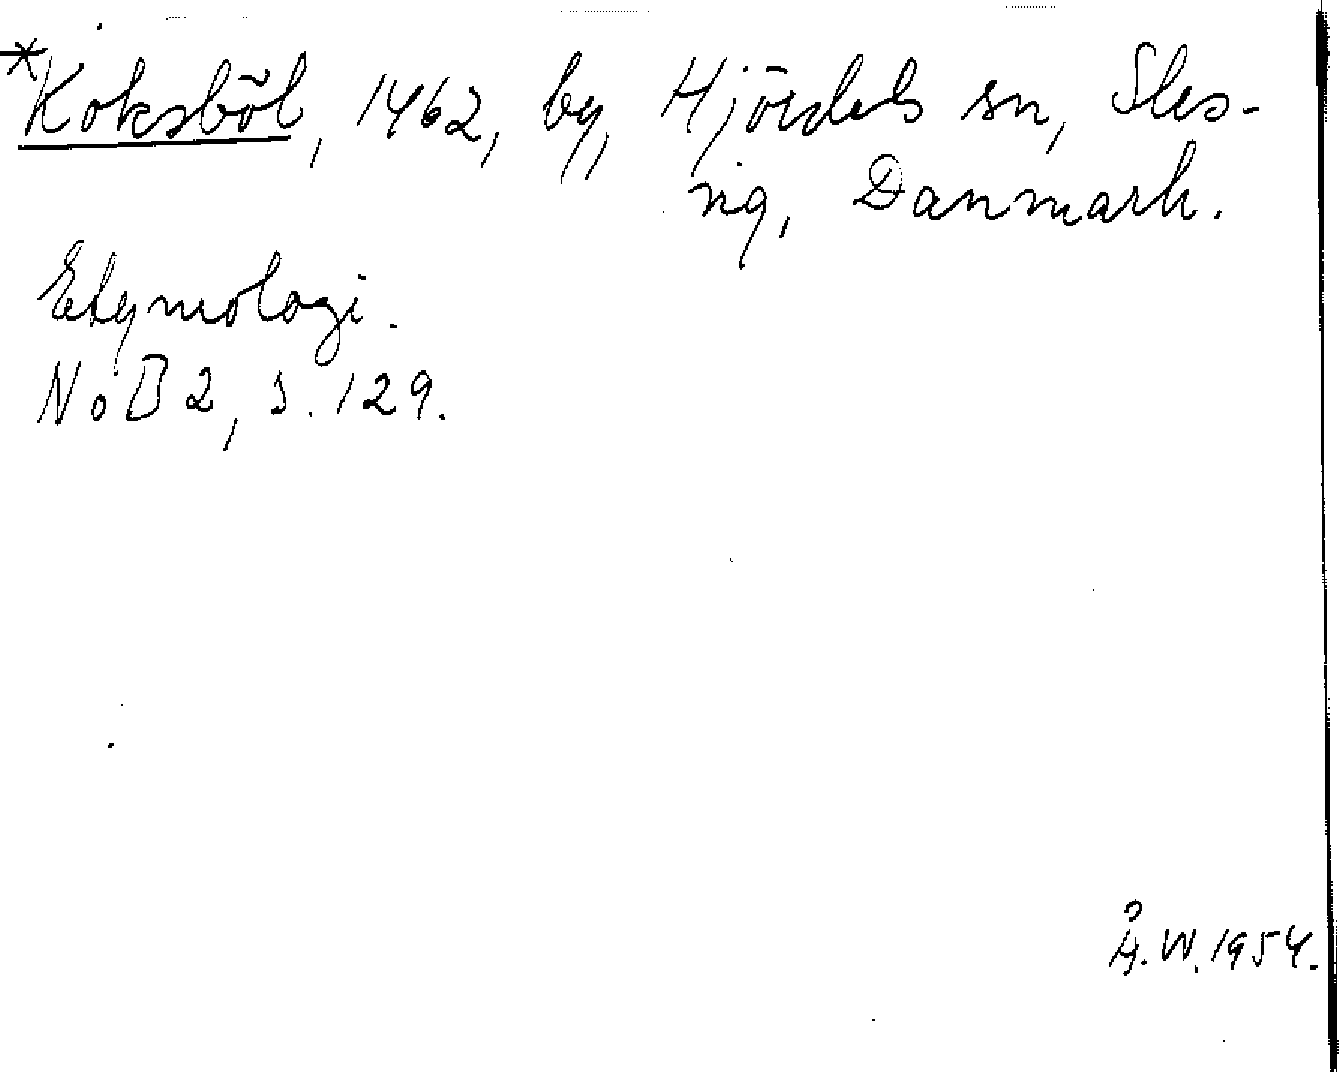 *Koksböl, 1462, by, Hjördels sn, Sles-
vig, Danmark.
Etymologi.
NoB 2, s. 129.
Å.W. 1954.